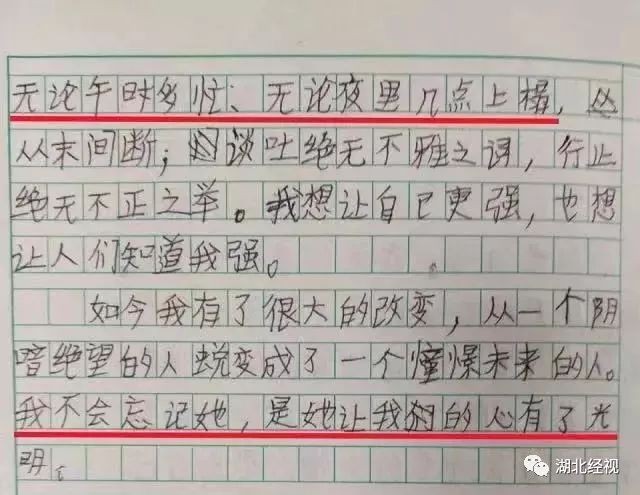 无论午时多忙、无论夜里几点上榻,
从未间断;谈吐绝无不雅之词,行止
绝无不正之举。我想让自已更强,也想
让人们知道我强。
如今我有了很大的改变,从一个阴
暗绝望的人蜕变成了一个憧憬未来的人。
我不会忘记她,是她让我们的心有了光
明。
湖北经视